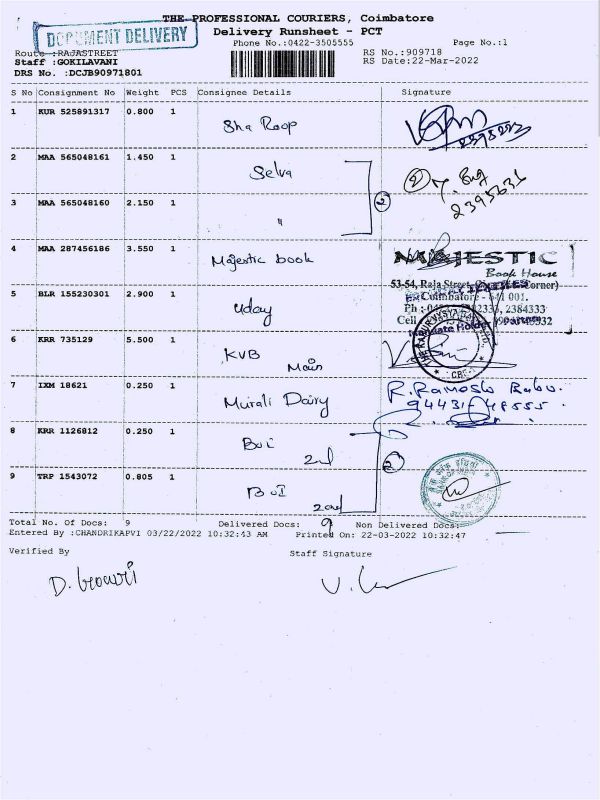 THE PROFESSIONAL COURIERS, Coimbatore
DOCUMENT DELIVERY
Delivery Runsheet - PCT
Phone No.:0422-3505555 Page No.:1
Route :RAJASTREET RS No.:909718
Staff :GOKILAVANI RS Date:22-Mar-2022
DRS No. :DCJB90971801
S No Consignment No Weight PCS Consignee Details Signature
1 KUR 525891317 0.800 1 Sha Roop
2 MAA 565048161 1.450 1 Selva
3 MAA 565048160 2.150 1 "
2
4 MAA 287456186 3.550 1 Majestic book
MAJESTIC
Book House
53-54, Raja Street, Corner)
Coimbatore - 641 001.
5 BLR 155230301 2.900 1 Uday
2384333
Cell
6 KRR 735129 5.500 1 KVB Main
7 IXM 18621 0.250 1 Murali Dairy
R. Ramesh Babu.
94431
8 KRR 1126812 0.250 1 BOI 2nd
2
9 TRP 1543072 0.805 1 BOI 2nd
Total No. Of Docs: 9 Delivered Docs: 9 Non Delivered Docs:
Entered By :CHANDRIKAPVI 03/22/2022 10:32:43 AM Printed On: 22-03-2022 10:32:47
Verified By Staff Signature
D. Gowri